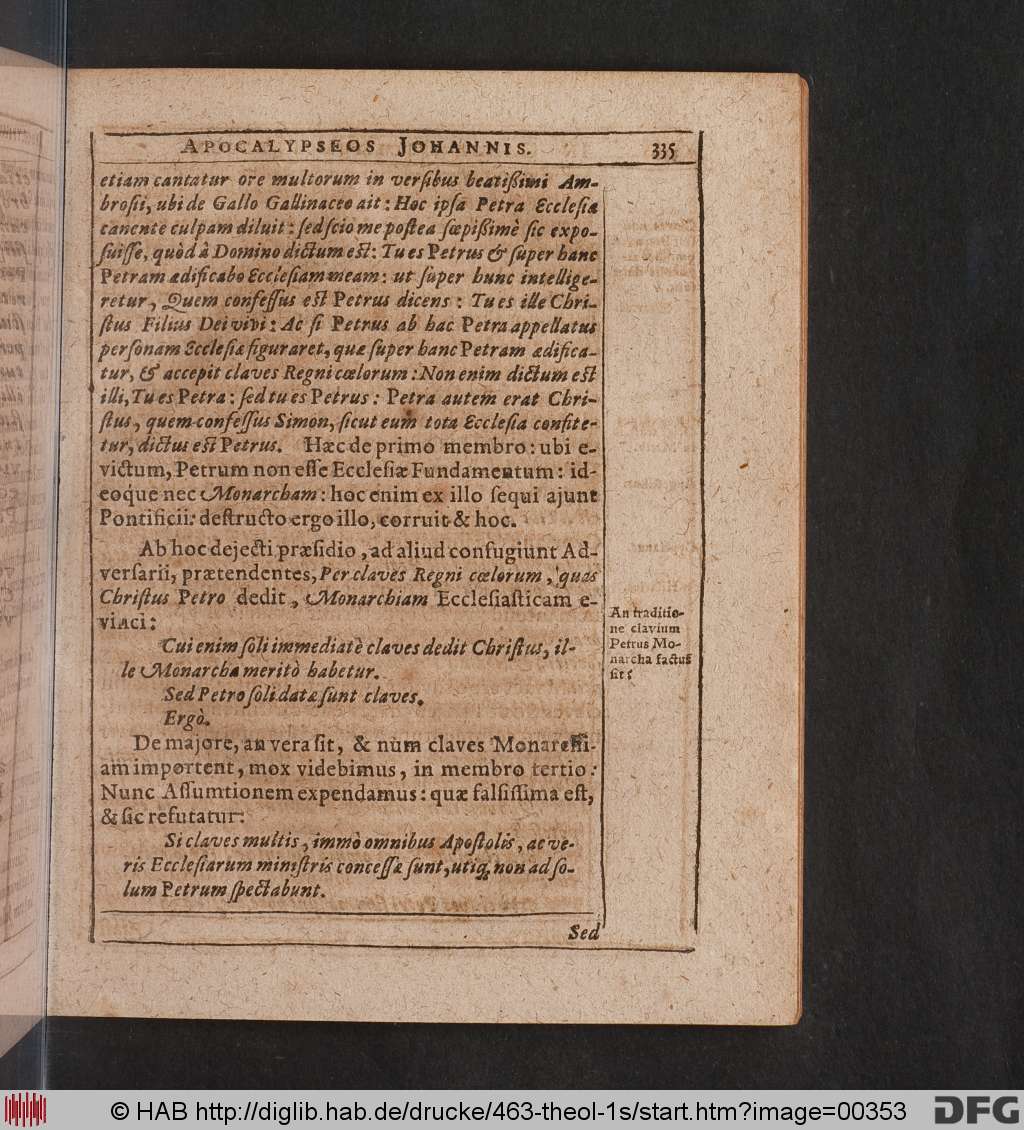 APOCALYPSEOS JOHANNIS. 335
etiam cantatur ore multorum in verſibus beatißimi Am-
broſii, ubi de Gallo Gallinaceo ait: Hoc ipſa Petra Eccleſiæ
canente culpam diluit: ſed ſcio me poſtea ſæpißimè ſic expo-
ſuiſſe, quòd à Domino dictum eſt: Tu es Petrus & ſuper hanc
Petram ædificabo Eccleſiam meam: ut ſuper hunc intellige-
retur, Quem confeſſus eſt Petrus dicens: Tu es ille Chri-
ſtus Filius Dei vivi: Ac ſi Petrus ab hac Petra appellatus
perſonam Eccleſiæ figuraret, quæ ſuper hanc Petram ædifica-
tur, & accepit claves Regni cœlorum: Non enim dictum eſt
illi, Tu es Petra: ſed tu es Petrus: Petra autem erat Chri-
ſtus, quem confeſſus Simon, ſicut eum tota Eccleſia confite-
tur, dictus eſt Petrus. Hæc de primo membro: ubi e-
victum, Petrum non eſſe Eccleſiæ Fundamentum: id-
eoque nec Monarcham: hoc enim ex illo ſequi ajunt
Pontificii: deſtructo ergo illo, corruit & hoc.
Ab hoc dejecti præſidio, ad aliud confugiunt Ad-
verſarii, prætendentes, Per claves Regni cœlorum, quas
Chriſtus Petro dedit, Monarchiam Eccleſiaſticam e-
vinci:
An traditio-
ne clavium
Petrus Mo-
narcha factus
ſit?
Cui enim ſoli immediatè claves dedit Chriſtus, il-
le Monarcha meritò habetur.
Sed Petro ſoli datæ ſunt claves.
Ergò.
De majore, an vera ſit, & num claves Monarchi-
am importent, mox videbimus, in membro tertio:
Nunc Aſſumtionem expendamus: quæ falſiſſima eſt,
& ſic refutatur:
Si claves multis, immò omnibus Apoſtolis, ac ve-
ris Eccleſiarum miniſtris conceſſæ ſunt, utiq; non ad ſo-
lum Petrum ſpectabunt.
Sed
© HAB http://diglib.hab.de/drucke/463-theol-1s/start.htm?image=00353
DFG